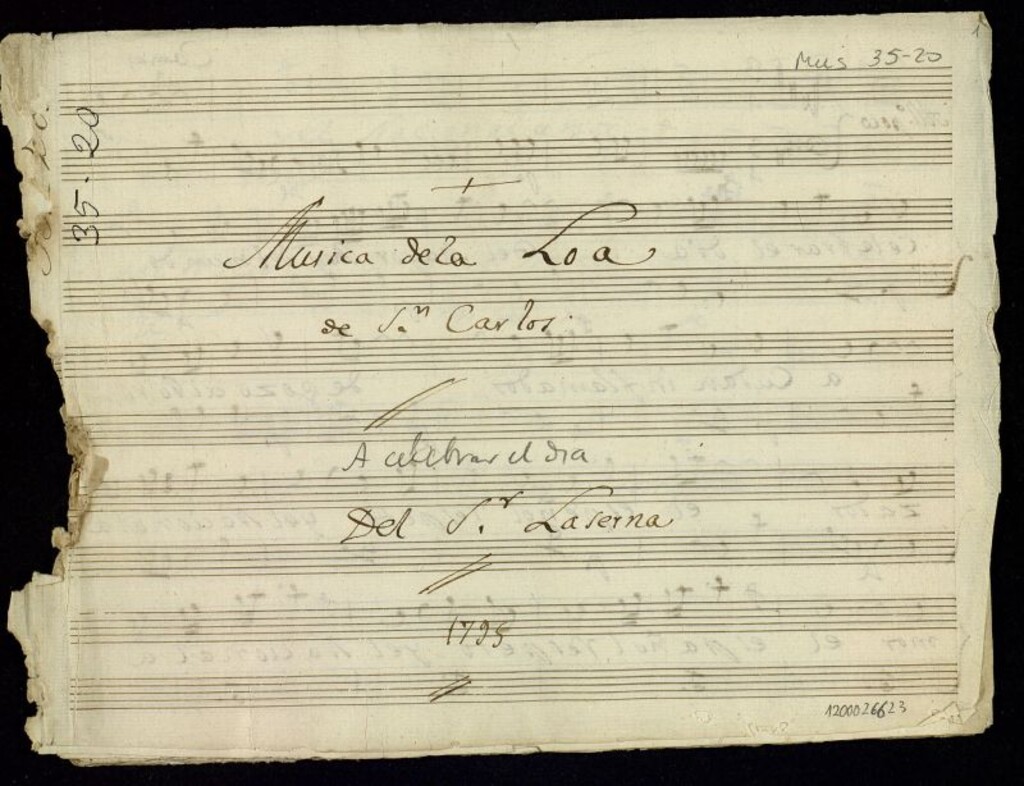 Mus 35-20
1
35-20
+
Musica de la Loa
de S.n Carlos.
A celebrar el dia
Del S.r Laserna
1795
1200026623